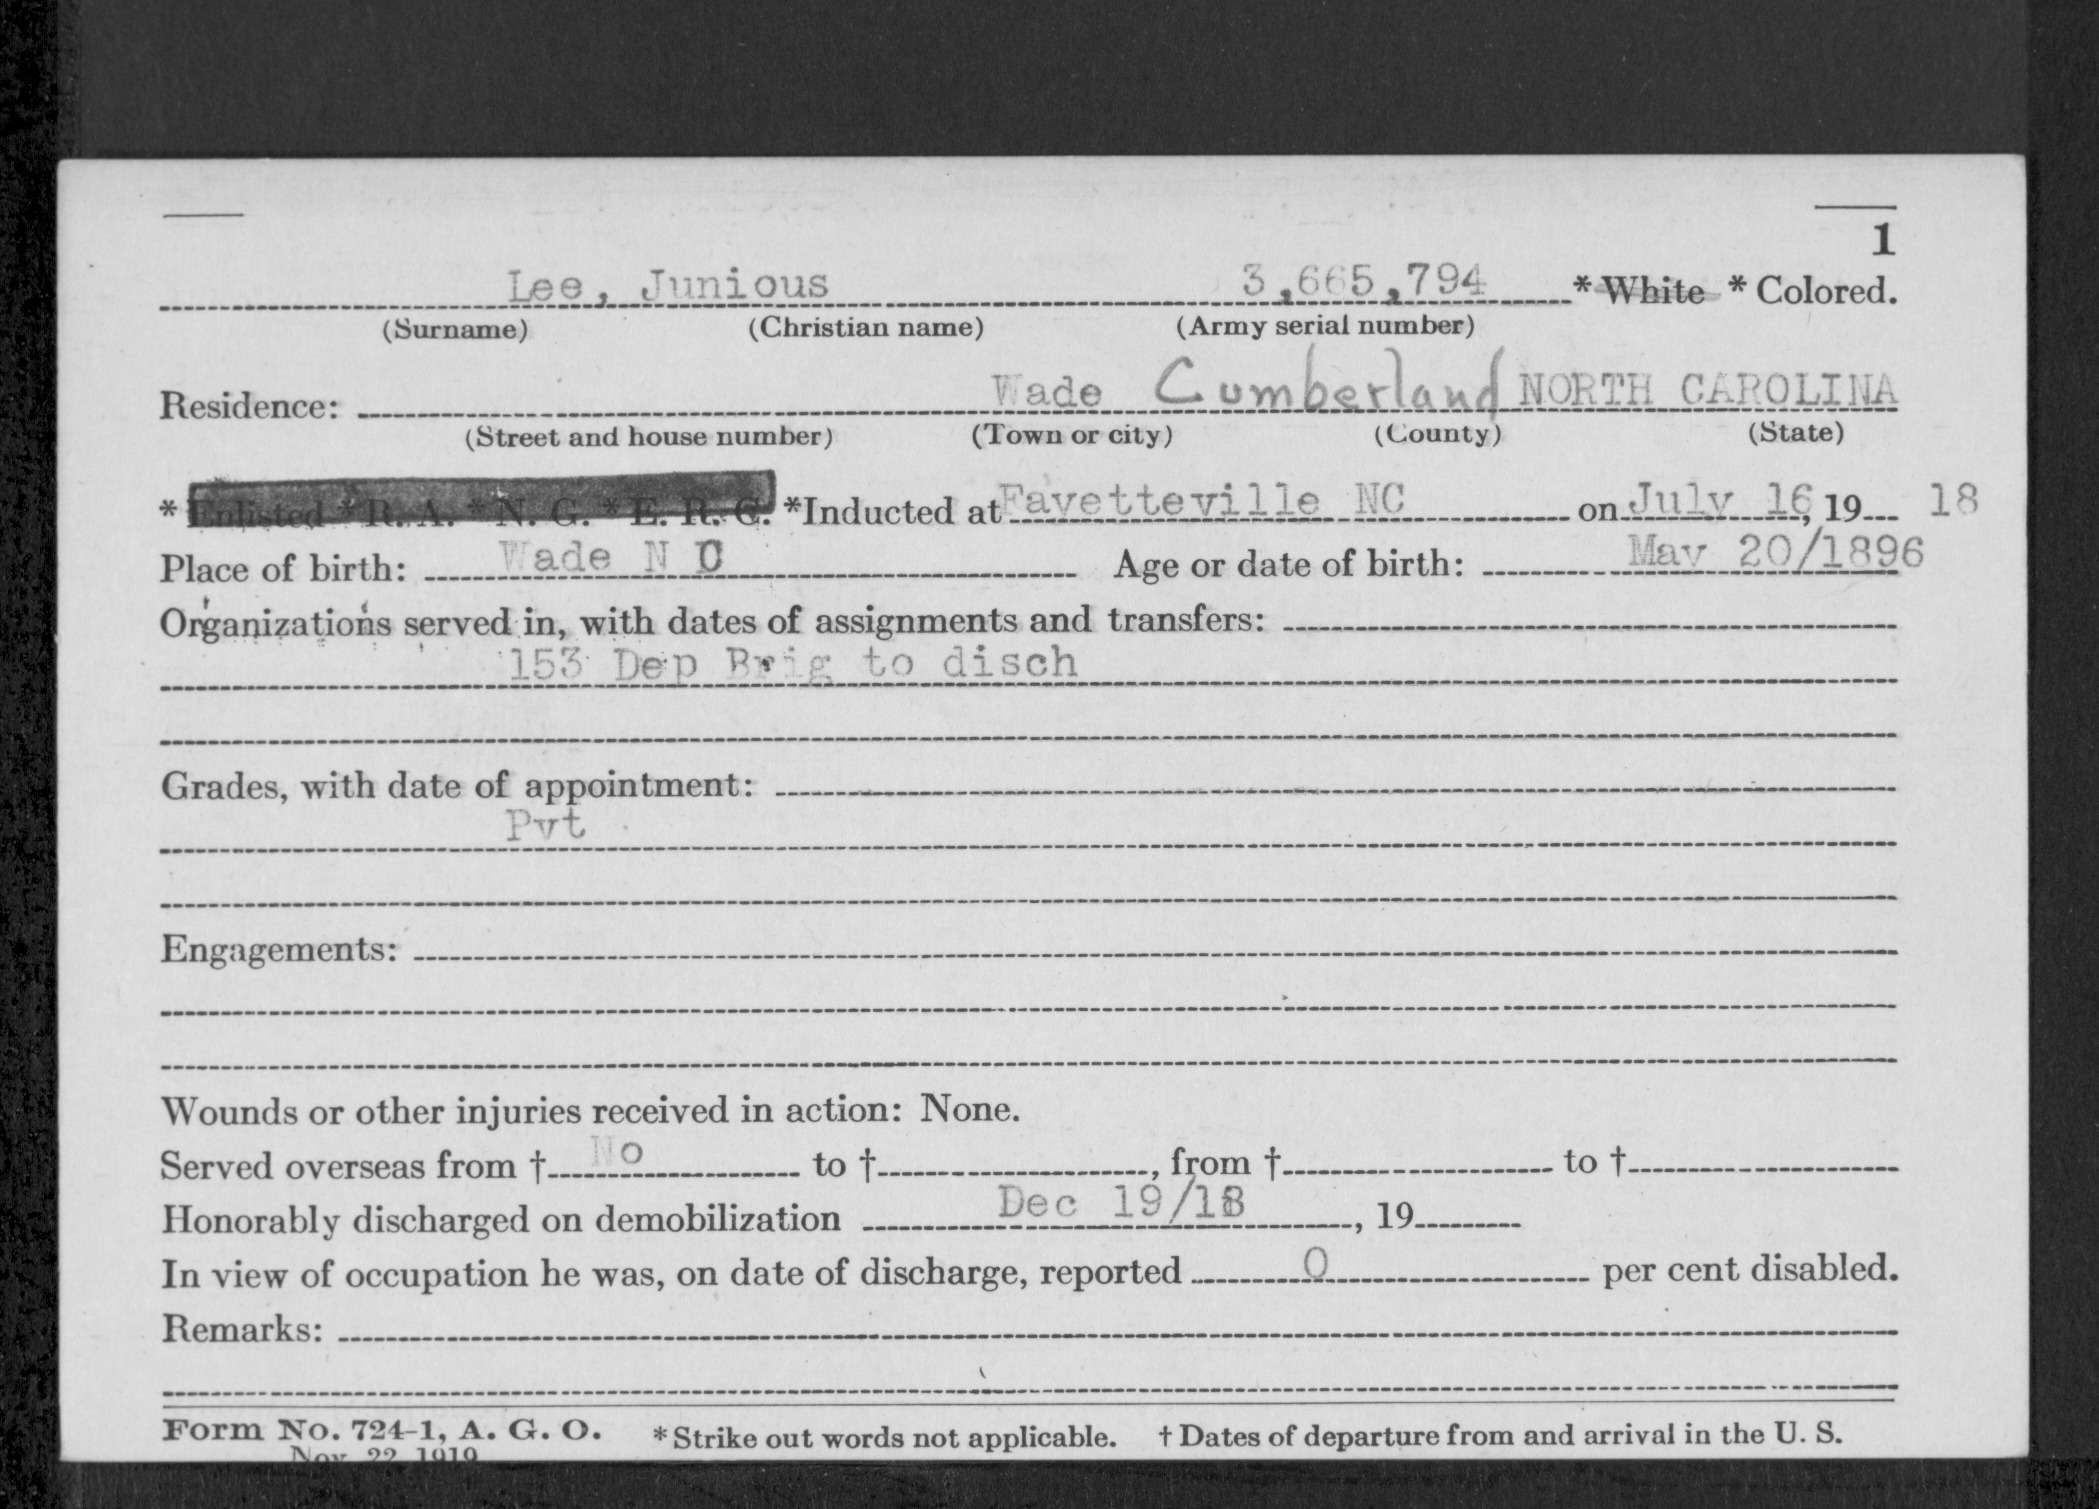 1
Lee, Junious 3,665,794 * White * Colored.
(Surname) (Christian name) (Army serial number)
Residence: Wade Cumberland NORTH CAROLINA
(Street and house number) (Town or city) (County) (State)
* Enlisted * R. A. * N. G. * E. R. C. *Inducted at Fayetteville NC on July 16, 19 18
Place of birth: Wade N C Age or date of birth: May 20/1896
Organizations served in, with dates of assignments and transfers:
153 Dep Brig to disch
Grades, with date of appointment:
Pvt
Engagements:
Wounds or other injuries received in action: None.
Served overseas from † No to †, from † to †
Honorably discharged on demobilization Dec 19/18, 19
In view of occupation he was, on date of discharge, reported 0 per cent disabled.
Remarks:
Form No. 724-1, A. G. O. * Strike out words not applicable. † Dates of departure from and arrival in the U. S.
Nov. 22, 1919